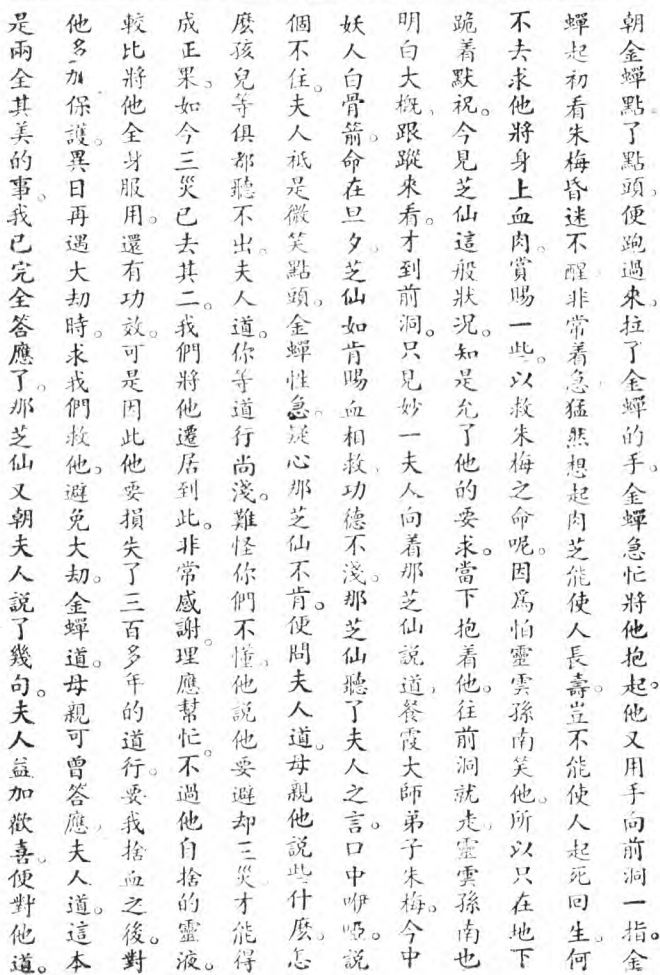 朝金蟬點了點頭。便跑過來。拉了金蟬的手。金蟬急忙將他抱起。他又用手向前洞一指。金
蟬起初看朱梅昏迷不醒。非常着急。猛然想起肉芝能使人長壽。豈不能使人起死回生。何
不去求他將身上血肉。賞賜一些。以救朱梅之命呢。因爲怕靈雲孫南笑他。所以只在地下
跪着默祝。今見芝仙這般狀况。知是允了他的要求。當下抱着他。往前洞就走。靈雲孫南也
明白大槪。跟蹤來看。才到前洞。只見妙一夫人向着那芝仙說道。餐霞大師弟子朱梅。今中
妖人白骨箭。命在旦夕。芝仙如肯賜血相救。功德不淺。那芝仙聽了夫人之言。口中咿啞。說
個不住。夫人祇是微笑點頭。金蟬性急。疑心那芝仙不肯。便問夫人道。母親他說些什麽。怎
麽孩兒等俱都聽不出。夫人道。你等道行尚淺。難怪你們不懂。他說他要避却三災。才能得
成正果。如今三災已去其二。我們將他遷居到此。非常感謝。理應幫忙。不過他自捨的靈液。
較比將他全身服用。還有功效。可是因此他要損失了三百多年的道行。要我捨血之後。對
他多加保護。異日再遇大劫時。求我們救他。避免大劫。金蟬道。母親可曾答應。夫人道。這本
是兩全其美的事。我已完全答應了。那芝仙又朝夫人說了幾句。夫人益加歡喜。便對他道。